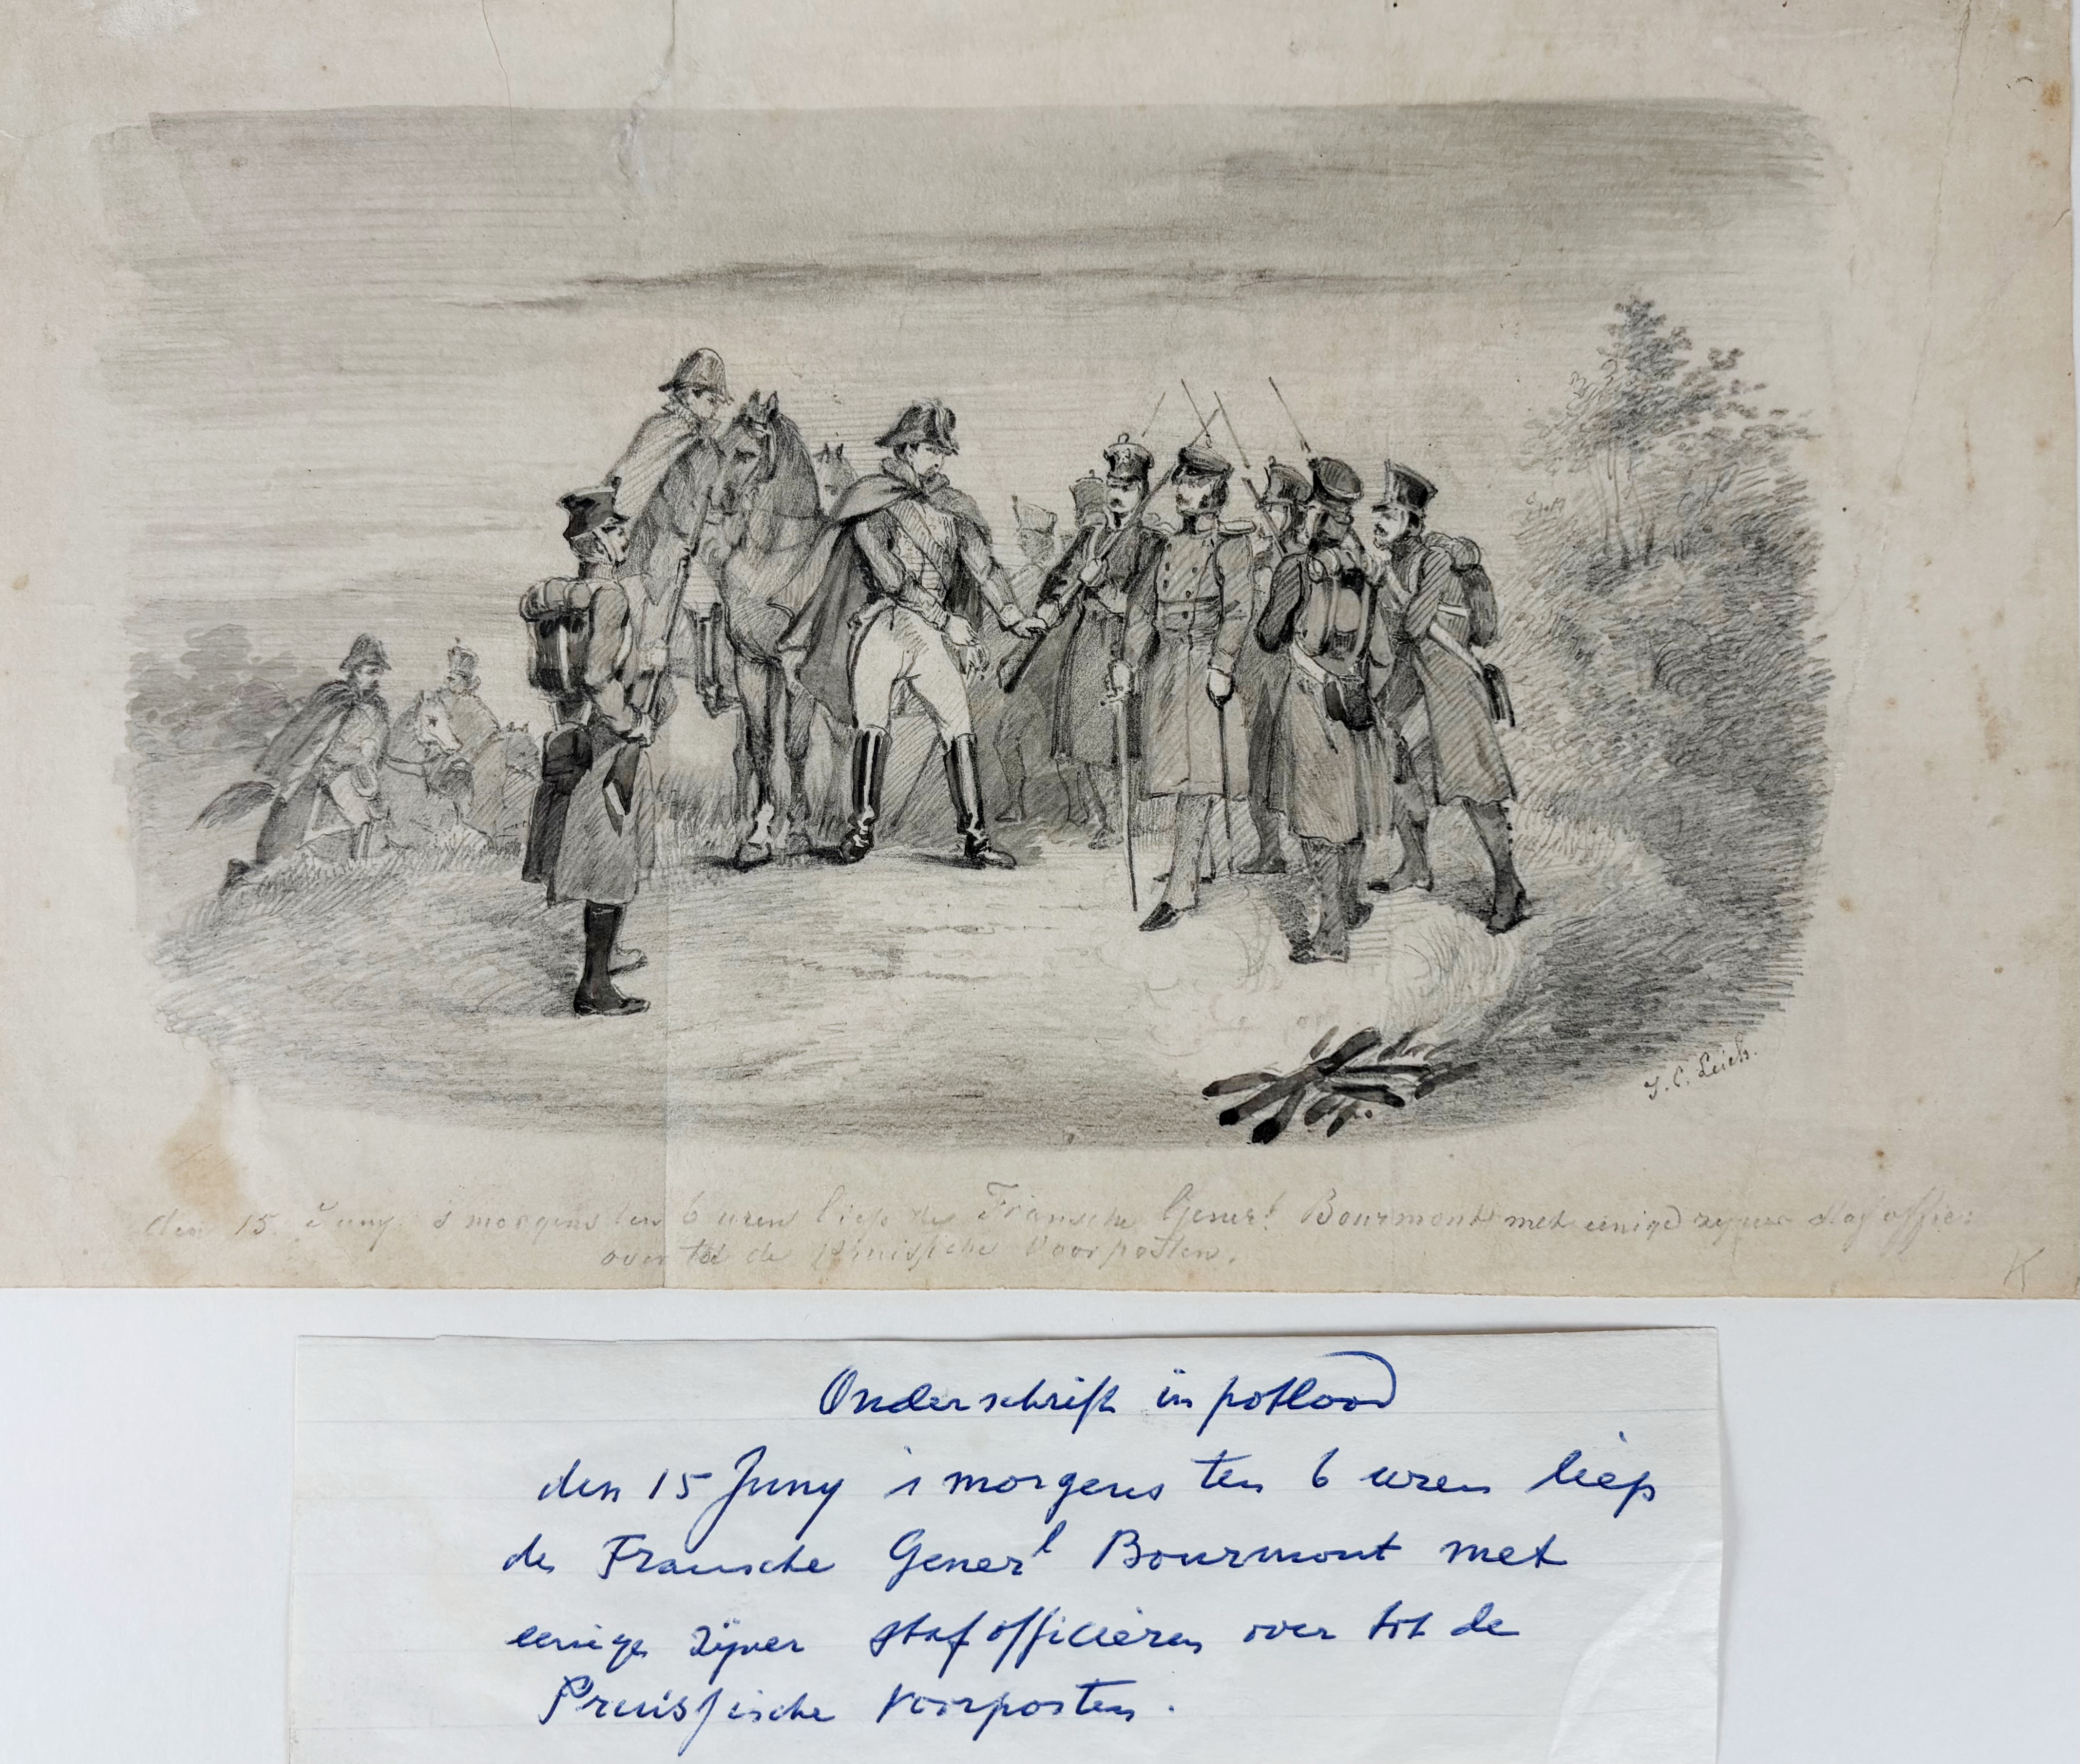 J. C. Leich.
den 15. Juny. s'morgens ten 6 uren liep de Fransche Gener.l Bourmont met einige zyner staf offic:
over tot de Pruisische Voorposten.
K
Onderschrift in potlood
den 15 Juny s morgens ten 6 uren liep
de Fransche Generl Bourmont met
eenige zijner staf officieren over tot de
Pruissische Voorposten.